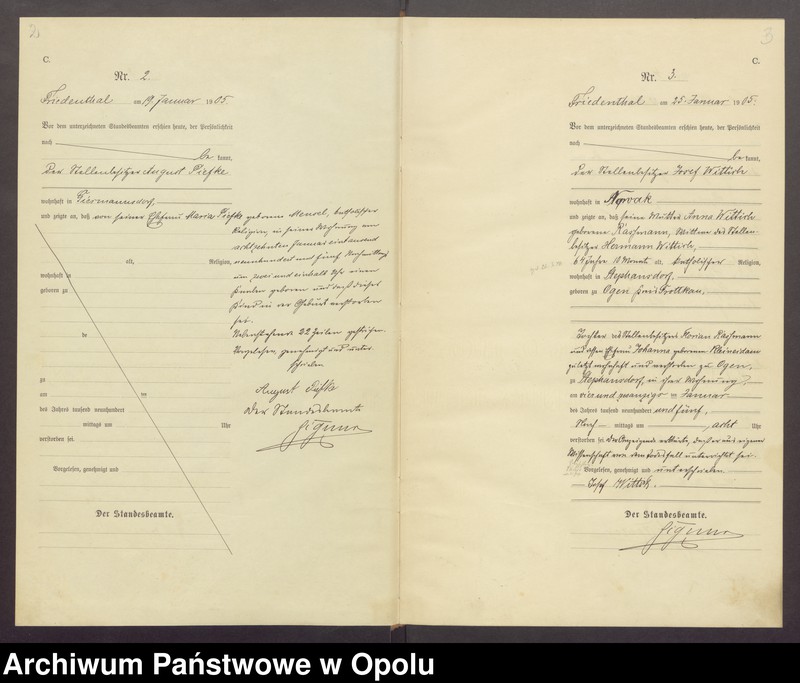 2
C.
Nr. 2.
Friedenthal am 19. Januar 1905.
Vor dem unterzeichneten Standesbeamten erschien heute, der Persönlichkeit
nach be kannt,
der Stellenbesitzer August Piefke
wohnhaft in Giermannsdorf,
und zeigte an, daß von seiner Ehefrau Maria Piefke geborene Menzel, katholischer
Religion, in seiner Wohnung am
achtzehnten Januar eintausend
neunhundert und fünf Nachmittags
um zwei und einhalb Uhr einen
Knaben geboren und daß dieses
Kind in der Geburt verstorben
sei.
Nebenstehende 22 Zeilen gestrichen.
Vorgelesen, genehmigt und unter-
schrieben
August Piefke
Der Standesbeamte
alt, Religion,
wohnhaft in
geboren zu
de
zu
am ten
des Jahres tausend neunhundert
mittags um Uhr
verstorben sei.
Vorgelesen, genehmigt und
Der Standesbeamte.
3
C.
Nr. 3.
Friedenthal am 25. Januar 1905.
Vor dem unterzeichneten Standesbeamten erschien heute, der Persönlichkeit
nach be kannt,
der Stellenbesitzer Josef Wittek
wohnhaft in
und zeigte an, daß seine Mutter Anna Wittek
geborene Raschmann, Witwe des Stellen-
besitzers Hermann Wittek,
64 Jahre Monate alt, katholischer Religion,
wohnhaft in Stephansdorf,
geboren zu Ogen Kreis Grottkau,
Tochter des Stellenbesitzers Florian Raschmann
und dessen Ehefrau Johanna geborene
zuletzt wohnhaft und verstorben zu Ogen,
zu Stephansdorf, in ihrer Wohnung,
am vierundzwanzigsten Januar
des Jahres tausend neunhundert und fünf,
Nach mittags um acht Uhr
verstorben sei. Der Anzeigende erklärte, daß er aus eigener
Wissenschaft von dem Todesfall unterrichtet sei.
Vorgelesen, genehmigt und unterschrieben
Josef Wittek.
Der Standesbeamte.
Archiwum Państwowe w Opolu